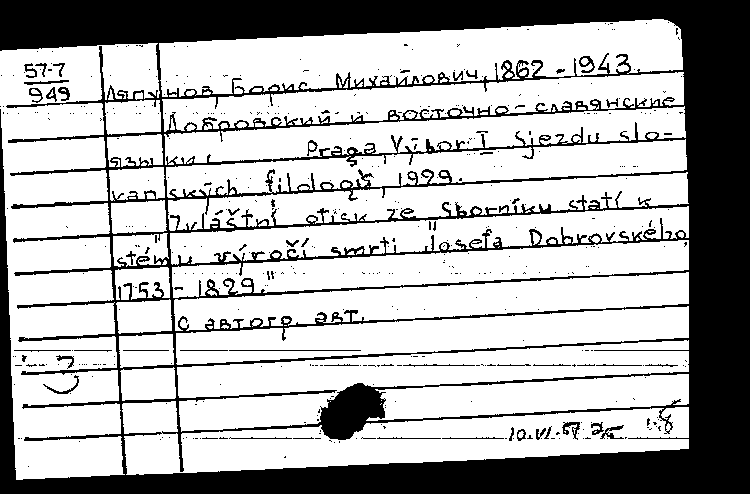 57-7
949
Ляпунов, Борис Михайлович, 1862 - 1943.
Добровский и восточно-славянские
языки. Praga, Výbor I Sjezdu slo-
vanských filologů, 1929.
Zvláštní otisk ze "Sborníku statí k
stému výročí smrti Josefa Dobrovského,
1753 - 1829."
С автогр. авт.
10.VI.57